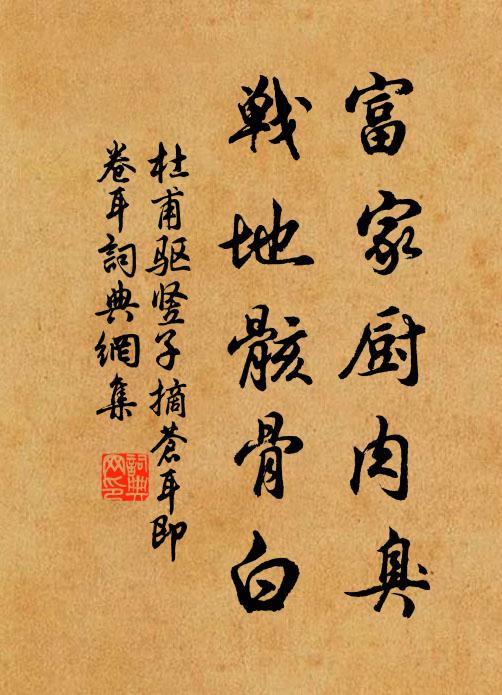 富家厨肉臭
戦地骸骨白
杜甫驱竖子摘苍耳即
卷耳詞典網集
詞典
网印